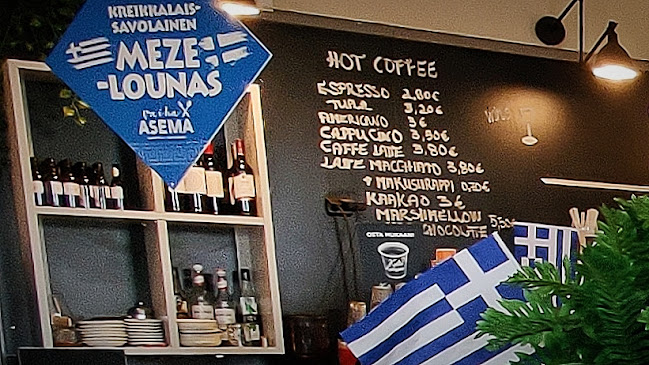 KREIKKALAIS-
SAVOLAINEN
MEZE
-LOUNAS
ASEMA
HOT COFFEE
ESPRESSO 2,80€
TUPLA 3,20€
AMERICANO 3€
CAPPUCINO 3,50€
CAFFE LATTE 3,80€
LATTE MACCHIATO 3,80€
+ MAKUSIIRAPPI 0,70€
KAAKAO 3€
MARSHMELLOW
CHOCOLATE 5,50€
OSTA MUKAAN!